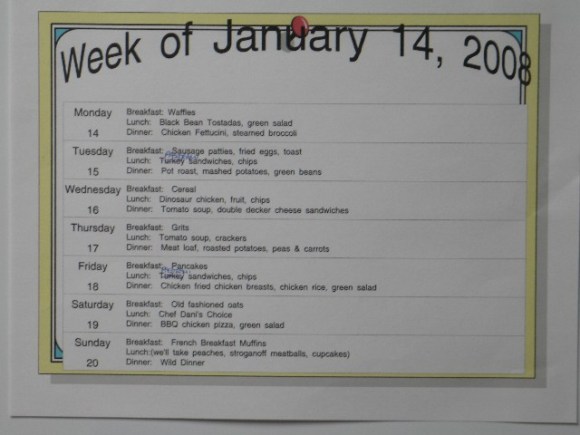 Week of January 14, 2008
Monday
14
Breakfast: Waffles
Lunch: Black Bean Tostadas, green salad
Dinner: Chicken Fettucini, steamed broccoli
Tuesday
15
Breakfast: Sausage patties, fried eggs, toast
Lunch: Turkey sandwiches, chips
Dinner: Pot roast, mashed potatoes, green beans
Wednesday
16
Breakfast: Cereal
Lunch: Dinosaur chicken, fruit, chips
Dinner: Tomato soup, double decker cheese sandwiches
Thursday
17
Breakfast: Grits
Lunch: Tomato soup, crackers
Dinner: Meat loaf, roasted potatoes, peas & carrots
Friday
18
Breakfast: Pancakes
Lunch: Turkey sandwiches, chips
Dinner: Chicken fried chicken breasts, chicken rice, green salad
Saturday
19
Breakfast: Old fashioned oats
Lunch: Chef Dani's Choice
Dinner: BBQ chicken pizza, green salad
Sunday
20
Breakfast: French Breakfast Muffins
Lunch:(we'll take peaches, stroganoff meatballs, cupcakes)
Dinner: Wild Dinner